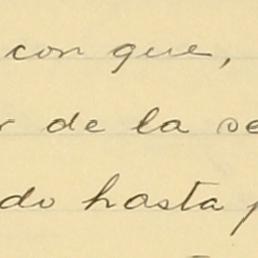 con que,
de la
hasta